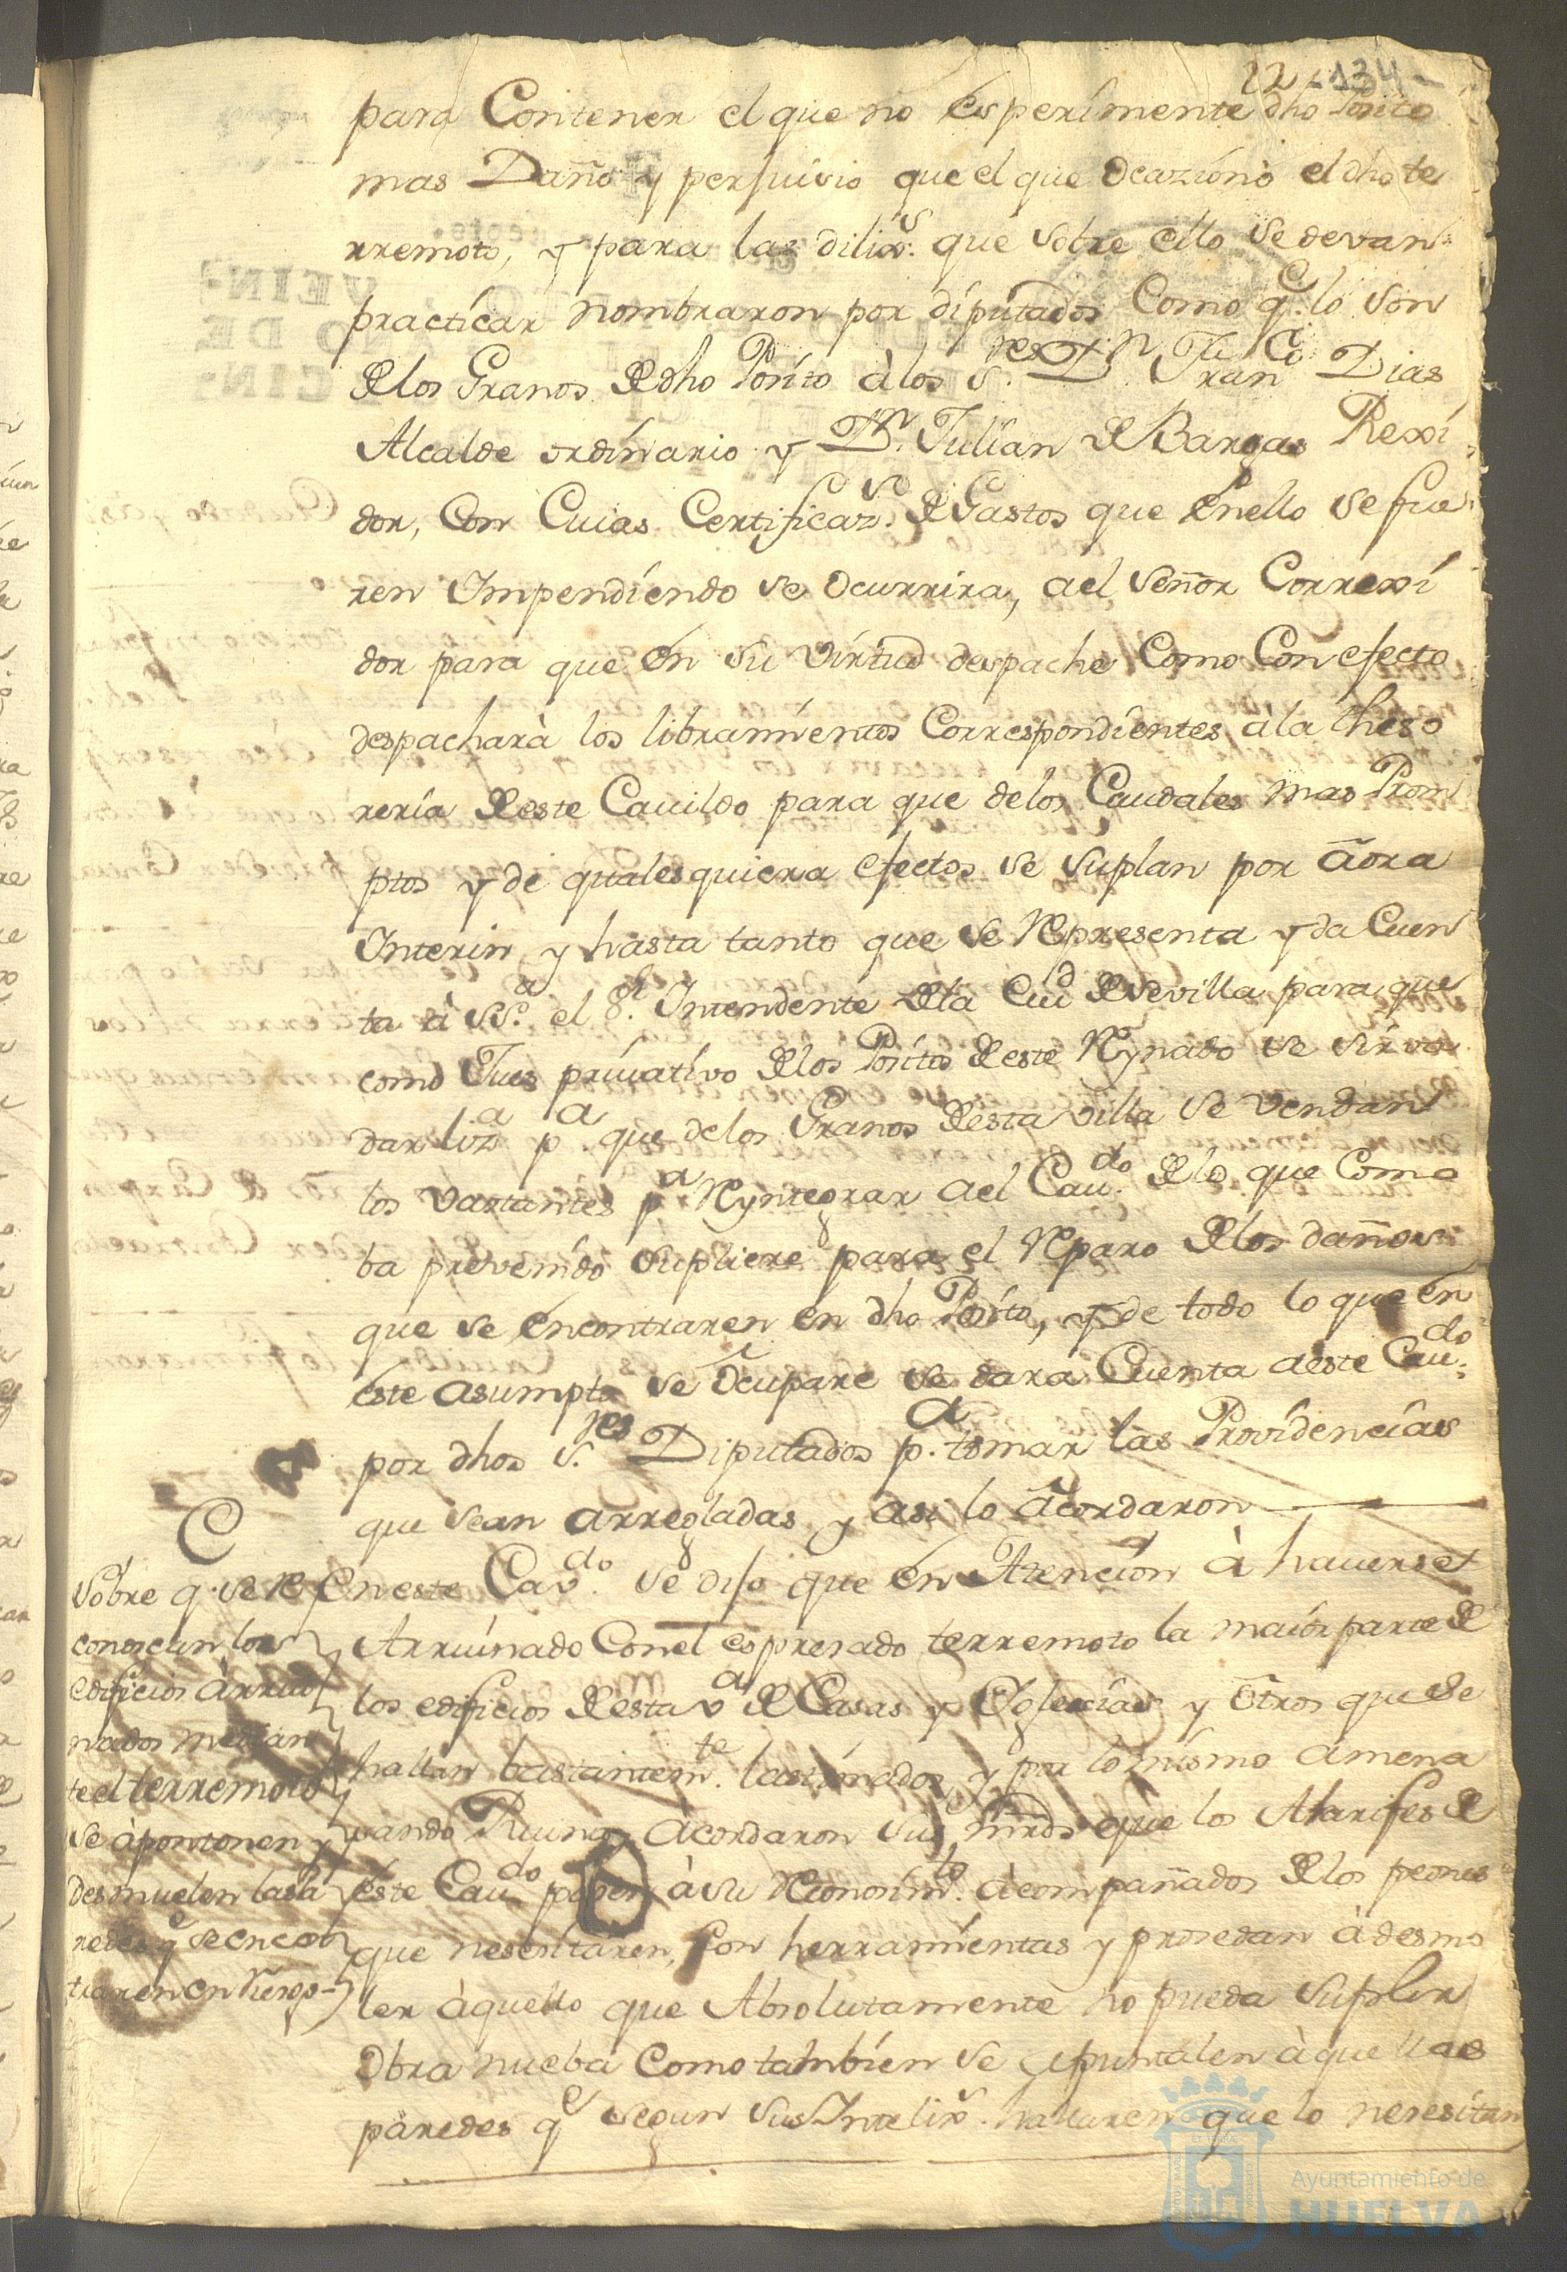 22 -134-
para Contener el que no esperimente dho Posito
mas Daño y persuivio que el que ocazionò el dho te
rremoto, y para las dilixs. que sobre ello se devan
practicar nombraron por diputados Como qe. lo son
de los Granos de dho Posito à los Sres. Dn. Franco Dias
Alcalde ordinario y Dn. Julian de Bargas Rexi
dor, Con Cuias Certificazs. de Gastos que en ello se fue
ren Impendiendo se ocurrira, ael señor Correxi
dor para que en su virtud despache Como Con efecto
despacharà los libramientos Correspondientes à la theso
reria de este Cavildo para que de los Caudales mas Prom
ptos y de quales quiera efectos se suplan por aora
Interin y hasta tanto que se Representa y da Cuen
ta à SSa. el Sr. Intendente de la Ciud de Sevilla para que
como Jues privativo de los Positos de este Reynado se sirva
dar liza pa. que de los Granos de esta villa se vendan
los vastantes pa Reyntegrar ael Cavdo. de lo que Como
ba prevenido supliere para el Reparo de los daños
que se encontraren en dho Posito, y de todo lo que en
este asumpto se ocupare se darà Cuenta a este Cavdo.
por dhos Sres. Diputados pa. tomar las Providencias
que sean arregladas y asi lo acordaron
C
En este Cavdo. se dijo que en Atencion à haverse
Arruinado Con el espresado terremoto la maior parte de
los edificios de esta va de Casas y Iglecias y otros que se
hallan bastantemte. lastimados y por lo mismo amena
sando Ruina, Acordaron sus mrds que los Alarifes de
este Cavdo pasen à su Reconosimto. àcompañados de los peones
que nesesitaren, Con herramientas y prosedan à desmo
ler àquello que Absolutamente no pueda suplir
obra nueba Como tambien se apuntalen àquellas
paredes qe segun sus Intelixs. hallaren que lo nesesitan
sobre q. se re
conoscan los
edificios àrrui
nados median
te el terremoto
se àpontonen y
desmuelen las pa
redes qe se encon
traren en Riesgo
Ayuntamiento de
HUELVA